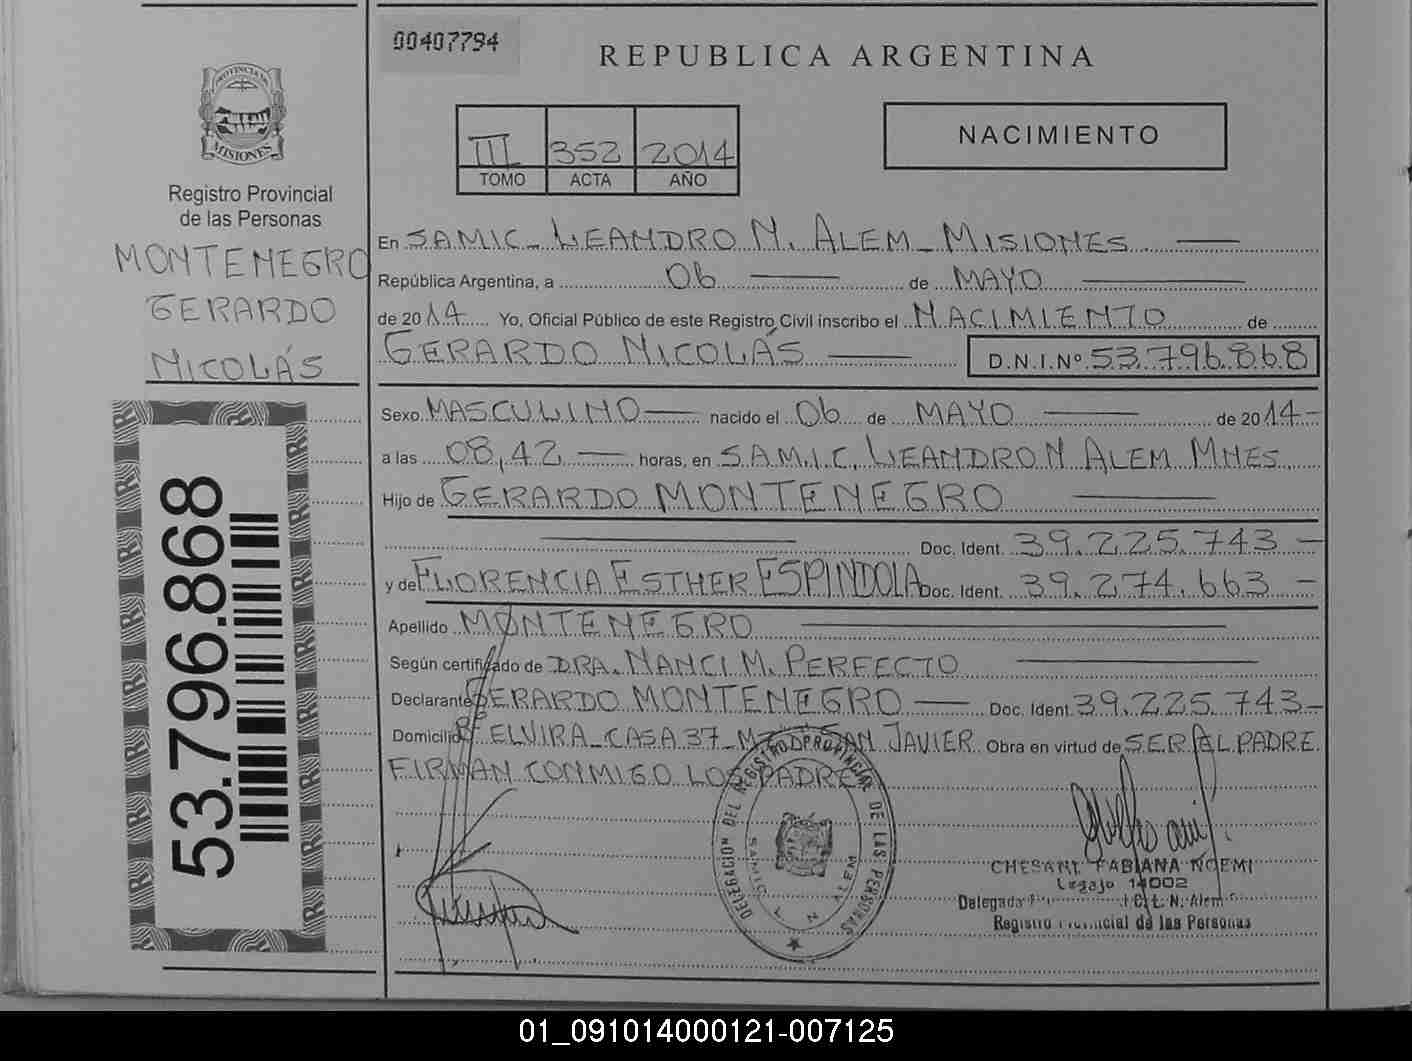 00407794
REPUBLICA ARGENTINA
PROVINCIA DE
MISIONES
Registro Provincial
de las Personas
MONTENEGRO
GERARDO
NICOLÁS
III 352 2014
TOMO ACTA AÑO
NACIMIENTO
En SAMIC - LEANDRO N. ALEM - MISIONES
República Argentina, a 06 de MAYO
de 2014 Yo, Oficial Público de este Registro Civil inscribo el NACIMIENTO de
GERARDO NICOLÁS D.N.I.Nº 53.796.868
Sexo MASCULINO nacido el 06 de MAYO de 2014-
a las 08,42 horas, en S.A.M.I.C. LEANDRO N ALEM MNES
Hijo de GERARDO MONTENEGRO
Doc. Ident. 39.225.743 -
y de FLORENCIA ESTHER ESPINDOLA Doc. Ident. 39.274.663 -
Apellido MONTENEGRO
Según certificado de DRA. NANCI M. PERFECTO
Declarante GERARDO MONTENEGRO Doc. Ident. 39.225.743-
Domicilio Bº ELVIRA - CASA 37 - SAN JAVIER Obra en virtud de SER EL PADRE.
FIRMAN CONMIGO LOS PADRES
53.796.868
DELEGACION DEL REGISTRO PROVINCIAL DE LAS PERSONAS
L. N. ALEM
CHESANI, FABIANA NOEMI
Legajo 14002
Delegada L. N. Alem
Registro Provincial de las Personas
01_091014000121-007125